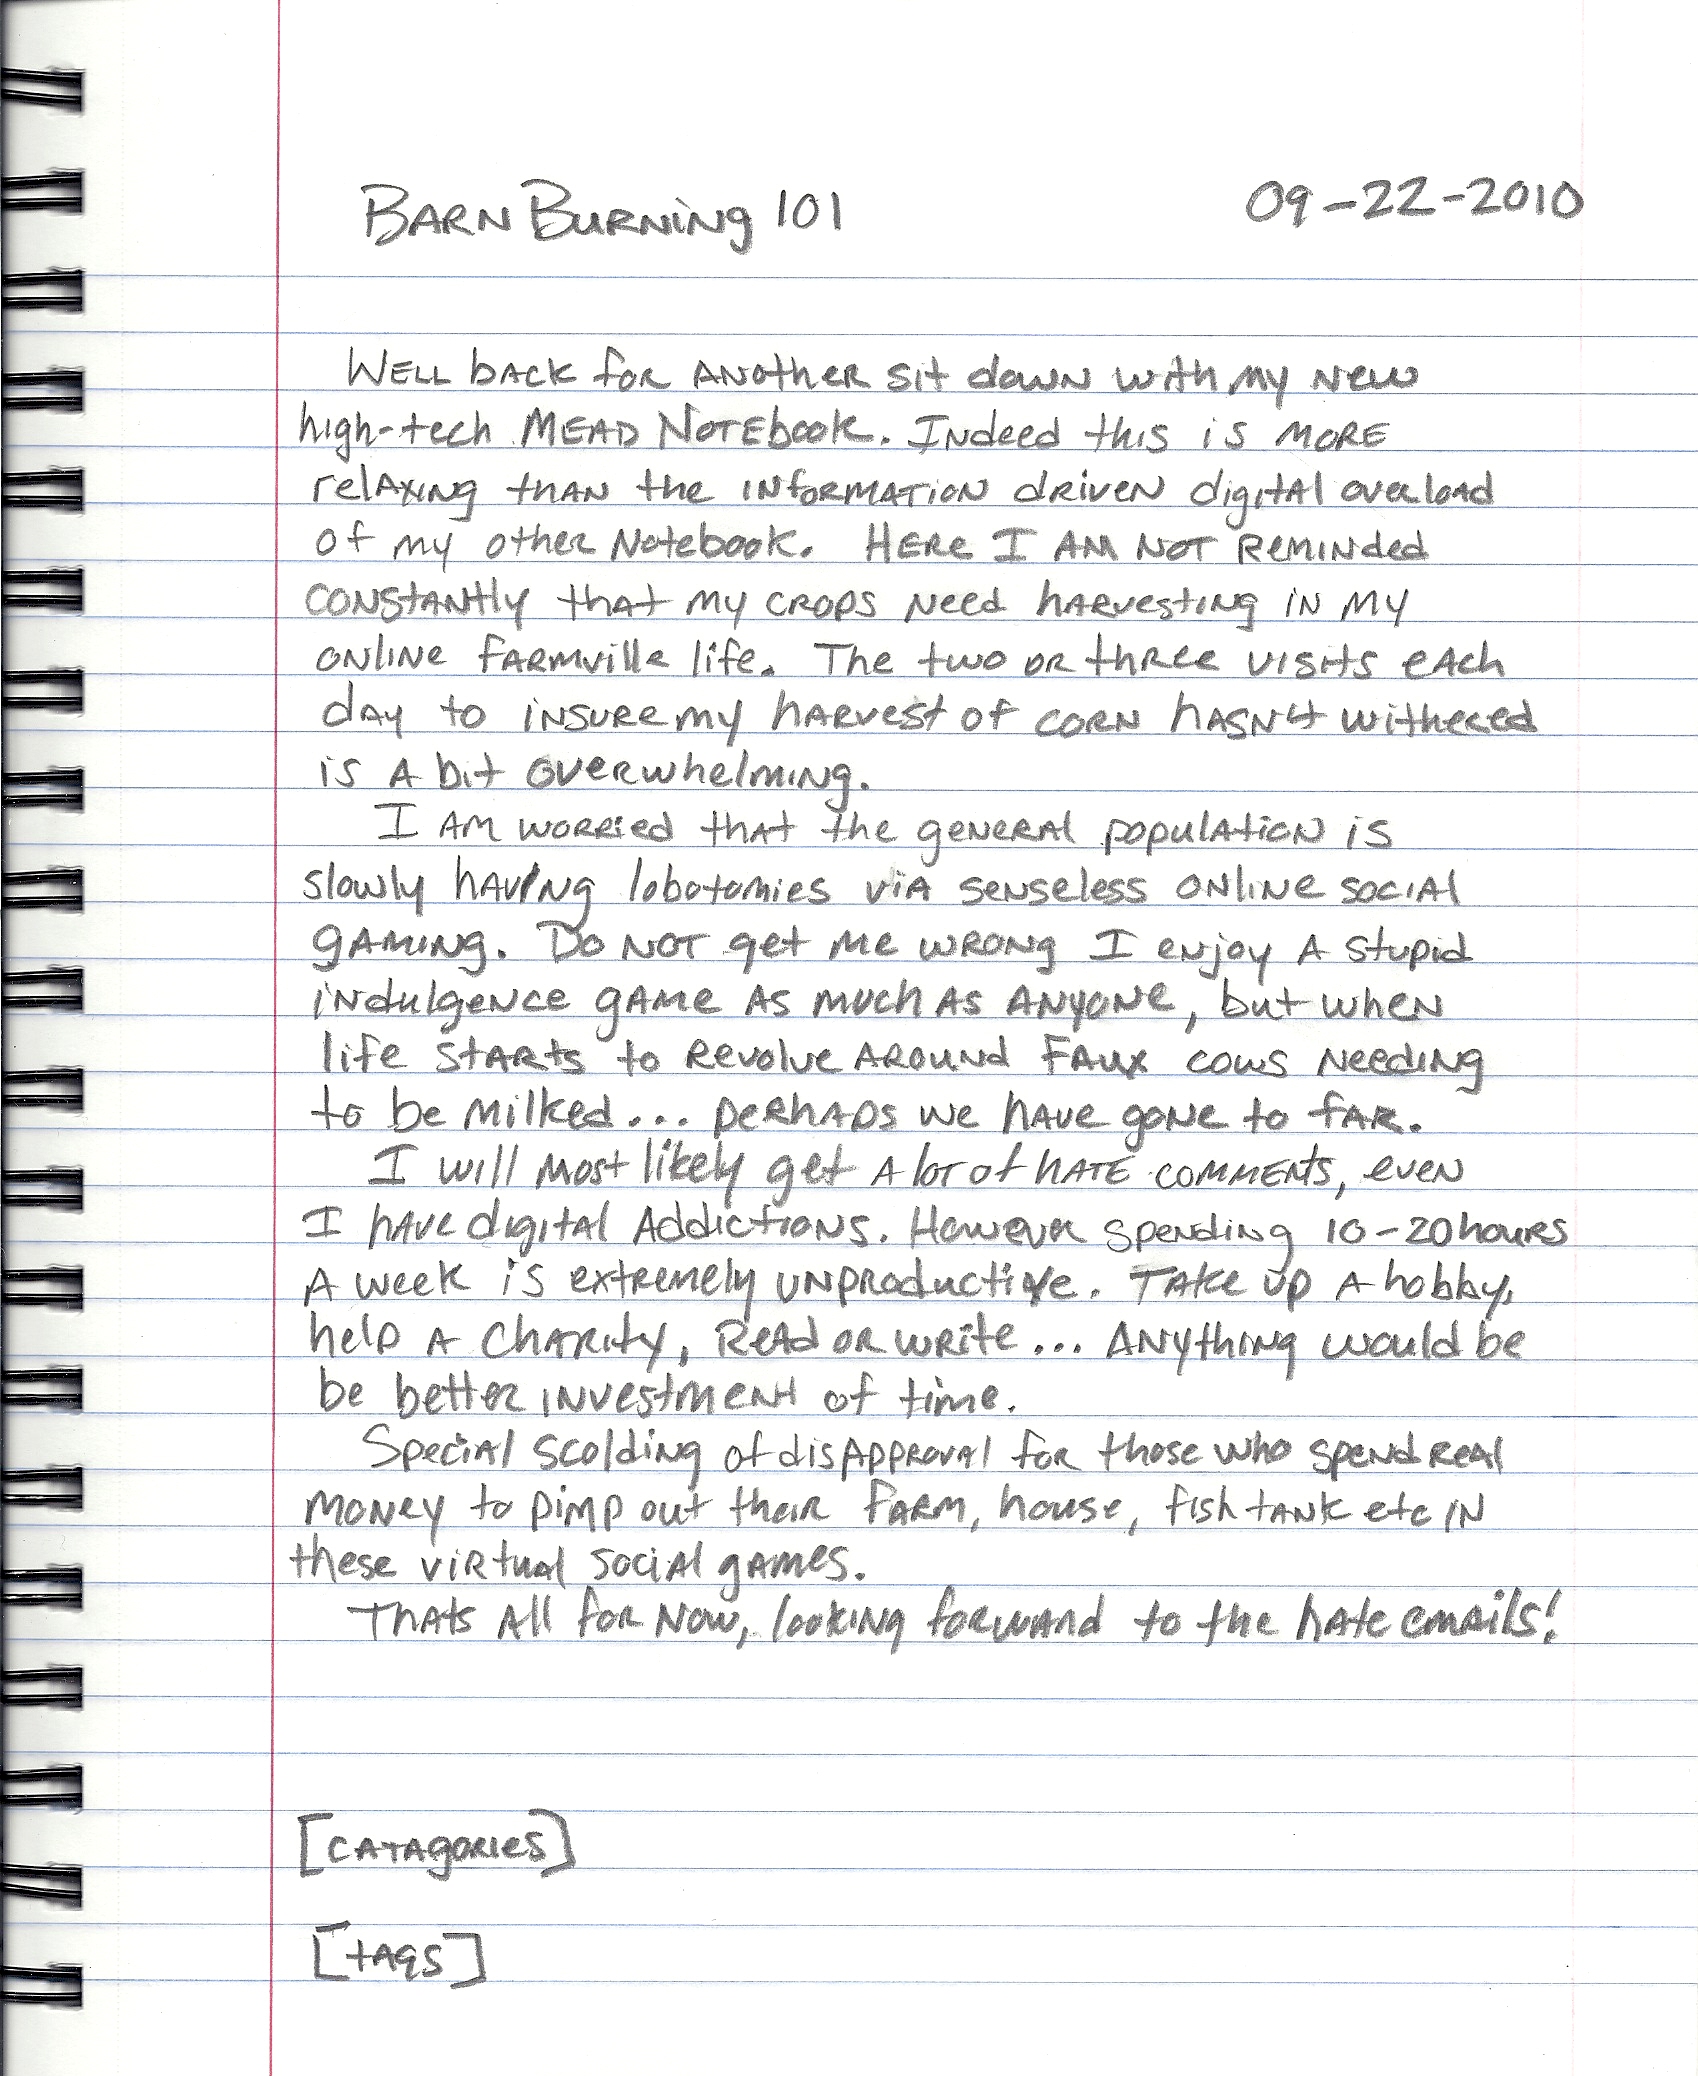 Barn Burning 101 09-22-2010
Well back for another sit down with my new
high-tech MEAD Notebook. Indeed this is more
relaxing than the information driven digital overload
of my other notebook. Here I am not reminded
constantly that my crops need harvesting in my
online farmville life. The two or three visits each
day to insure my harvest of corn hasn't withered
is a bit overwhelming.
I am worried that the general population is
slowly having lobotomies via senseless online social
gaming. Do not get me wrong I enjoy a stupid
indulgence game as much as anyone, but when
life starts to revolve around faux cows needing
to be milked... perhaps we have gone to far.
I will most likely get a lot of hate comments, even
I have digital addictions. However spending 10-20 hours
a week is extremely unproductive. Take up a hobby,
help a charity, read or write... Anything would be
be better investment of time.
Special scolding of disapproval for those who spend real
money to pimp out their farm, house, fish tank etc in
these virtual social games.
Thats all for now, looking forward to the hate emails!
[catagories]
[tags]